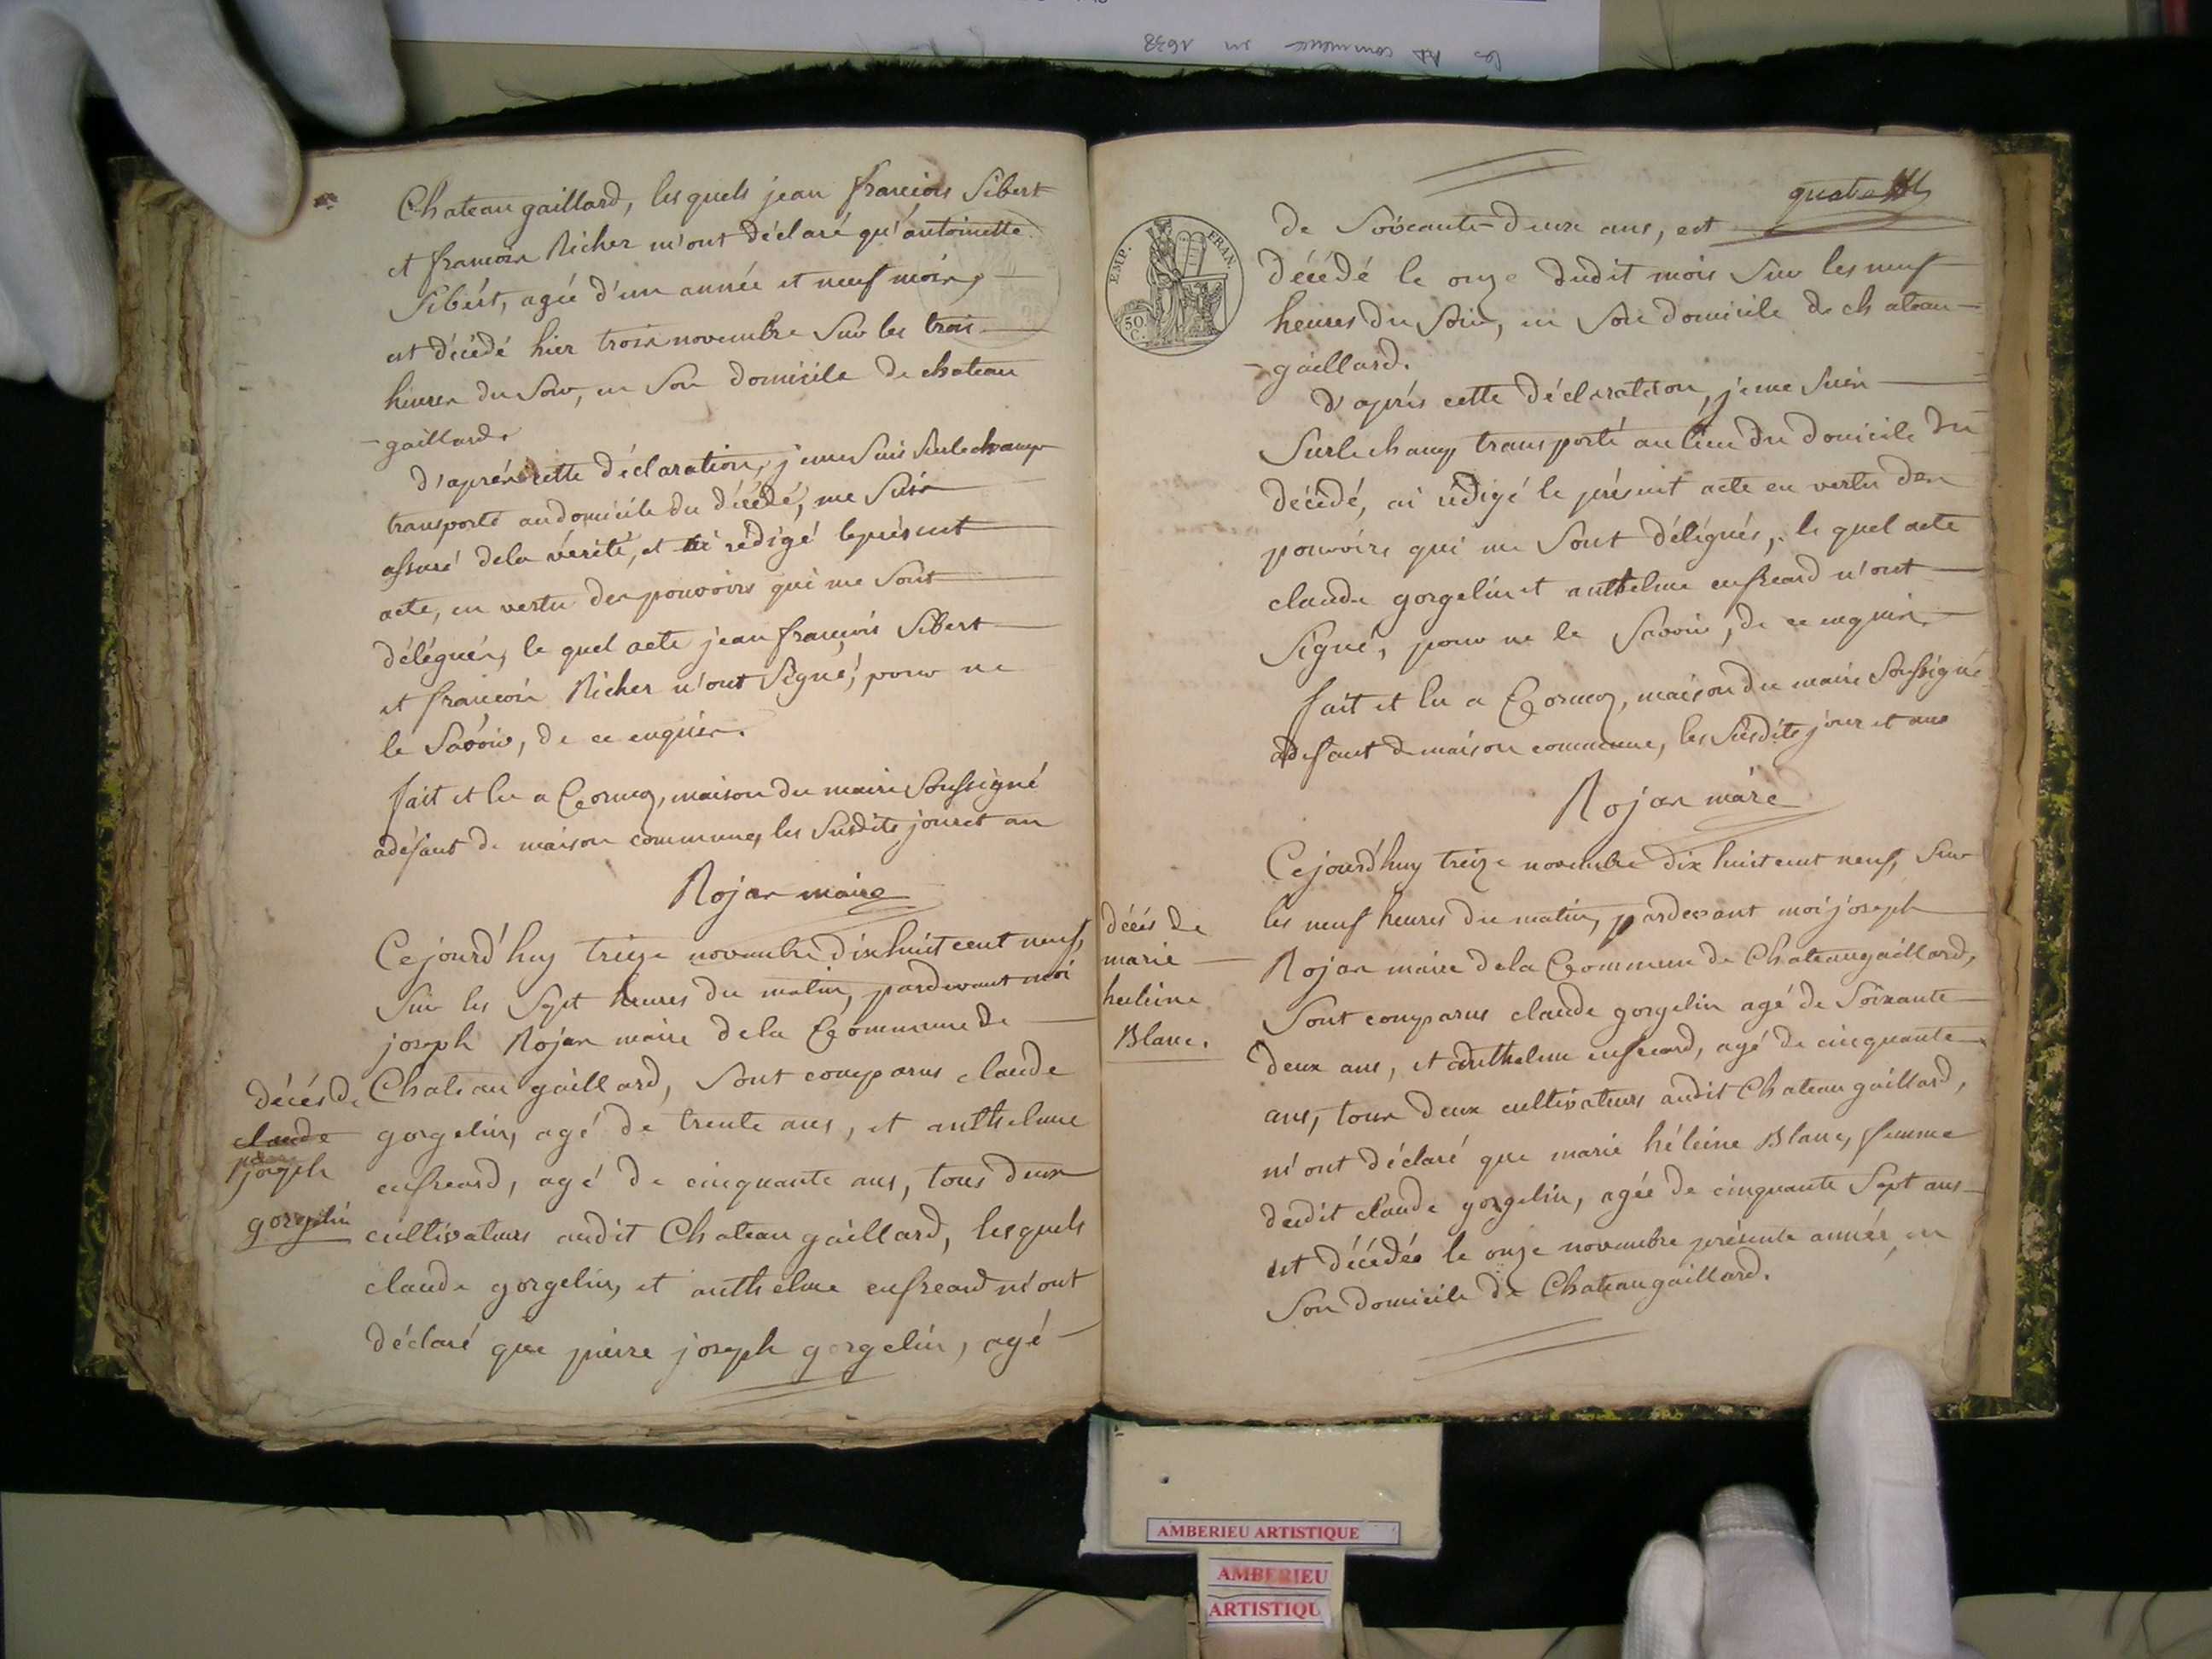 les AD commence en 1638
Chateaugaillard, lesquels jean francois Sibert
et francois Richer m'ont déclaré qu'antoinette
Sibért, agée d'un année et neuf mois,
est décédé hier trois novembre Sur les trois
heures du Soir, en Son domicile de chateau
-gaillard.
d'après cette déclaration, je me Suis Surlechamp
transporté au domicile du décédé, me Suis
assuré dela vérité, et ai rédigé le présent
acte, en vertu des pouvoirs qui me Sont
délégués, le quel acte jean françois Sibert
et francois Richer n'ont Signé, pour ne
le Savoir, de ce enquis.
fait et lu a Cormoz, maison du maire Soussigné
adéfaut de maison commune, les Susdits jour et an
Rojon maire
Cejourd'huy treize novembre dix huit cent neuf,
Sur les Sept heures du matin, pardevant moi
joseph Rojon maire dela Commune de
Chateau gaillard, Sont comparus claude
gorgelin, agé de trente ans, et anthelme
enfreard, agé de cinquante ans, tous deux
cultivateurs audit Chateau gaillard, lesquels
claude gorgelin, et anthelme enfreard m'ont
déclaré que pierre joseph gorgelin, agé
décés de
claude
pierre
joseph
gorgelin
EMP. FRAN.
50 C.
de Soixante-deux ans, est
décédé le onze dudit mois Sur les neuf
heures du Soir, en Son domicile de chateau-
-gaillard.
d'aprés cette déclaration, je me Suis
Surlechamp transporté au lieu du domicile du
décédé, ai rédigé le présent acte en vertu des
pouvoirs qui me Sont délégués, le quel acte
claude gorgelin et anthelme enfreard n'ont
Signé, pour ne le Savoir, de ce enquis.
fait et lu a Cormoz, maison du maire Soussigné
adefaut de maison commune, les Susdits jour et an
Rojon maire
décés de
marie
heleine
Blanc.
Cejourd'huy treize novembre dix huit cent neuf, Sur
les neuf heures du matin, pardevant moi joseph
Rojon maire dela Commune de Chateaugaillard,
Sont comparus claude gorgelin agé de Soixante
deux ans, et anthelme enfreard, agé de cinquante
ans, tous deux cultivateurs audit Chateau gaillard,
m'ont déclaré que marie héleine Blanc, femme
dudit claude gorgelin, agée de cinquante Sept ans
est décédée le onze novembre présente année, en
Son domicile de Chateaugaillard.
AMBERIEU ARTISTIQUE
AMBERIEU
ARTISTIQU